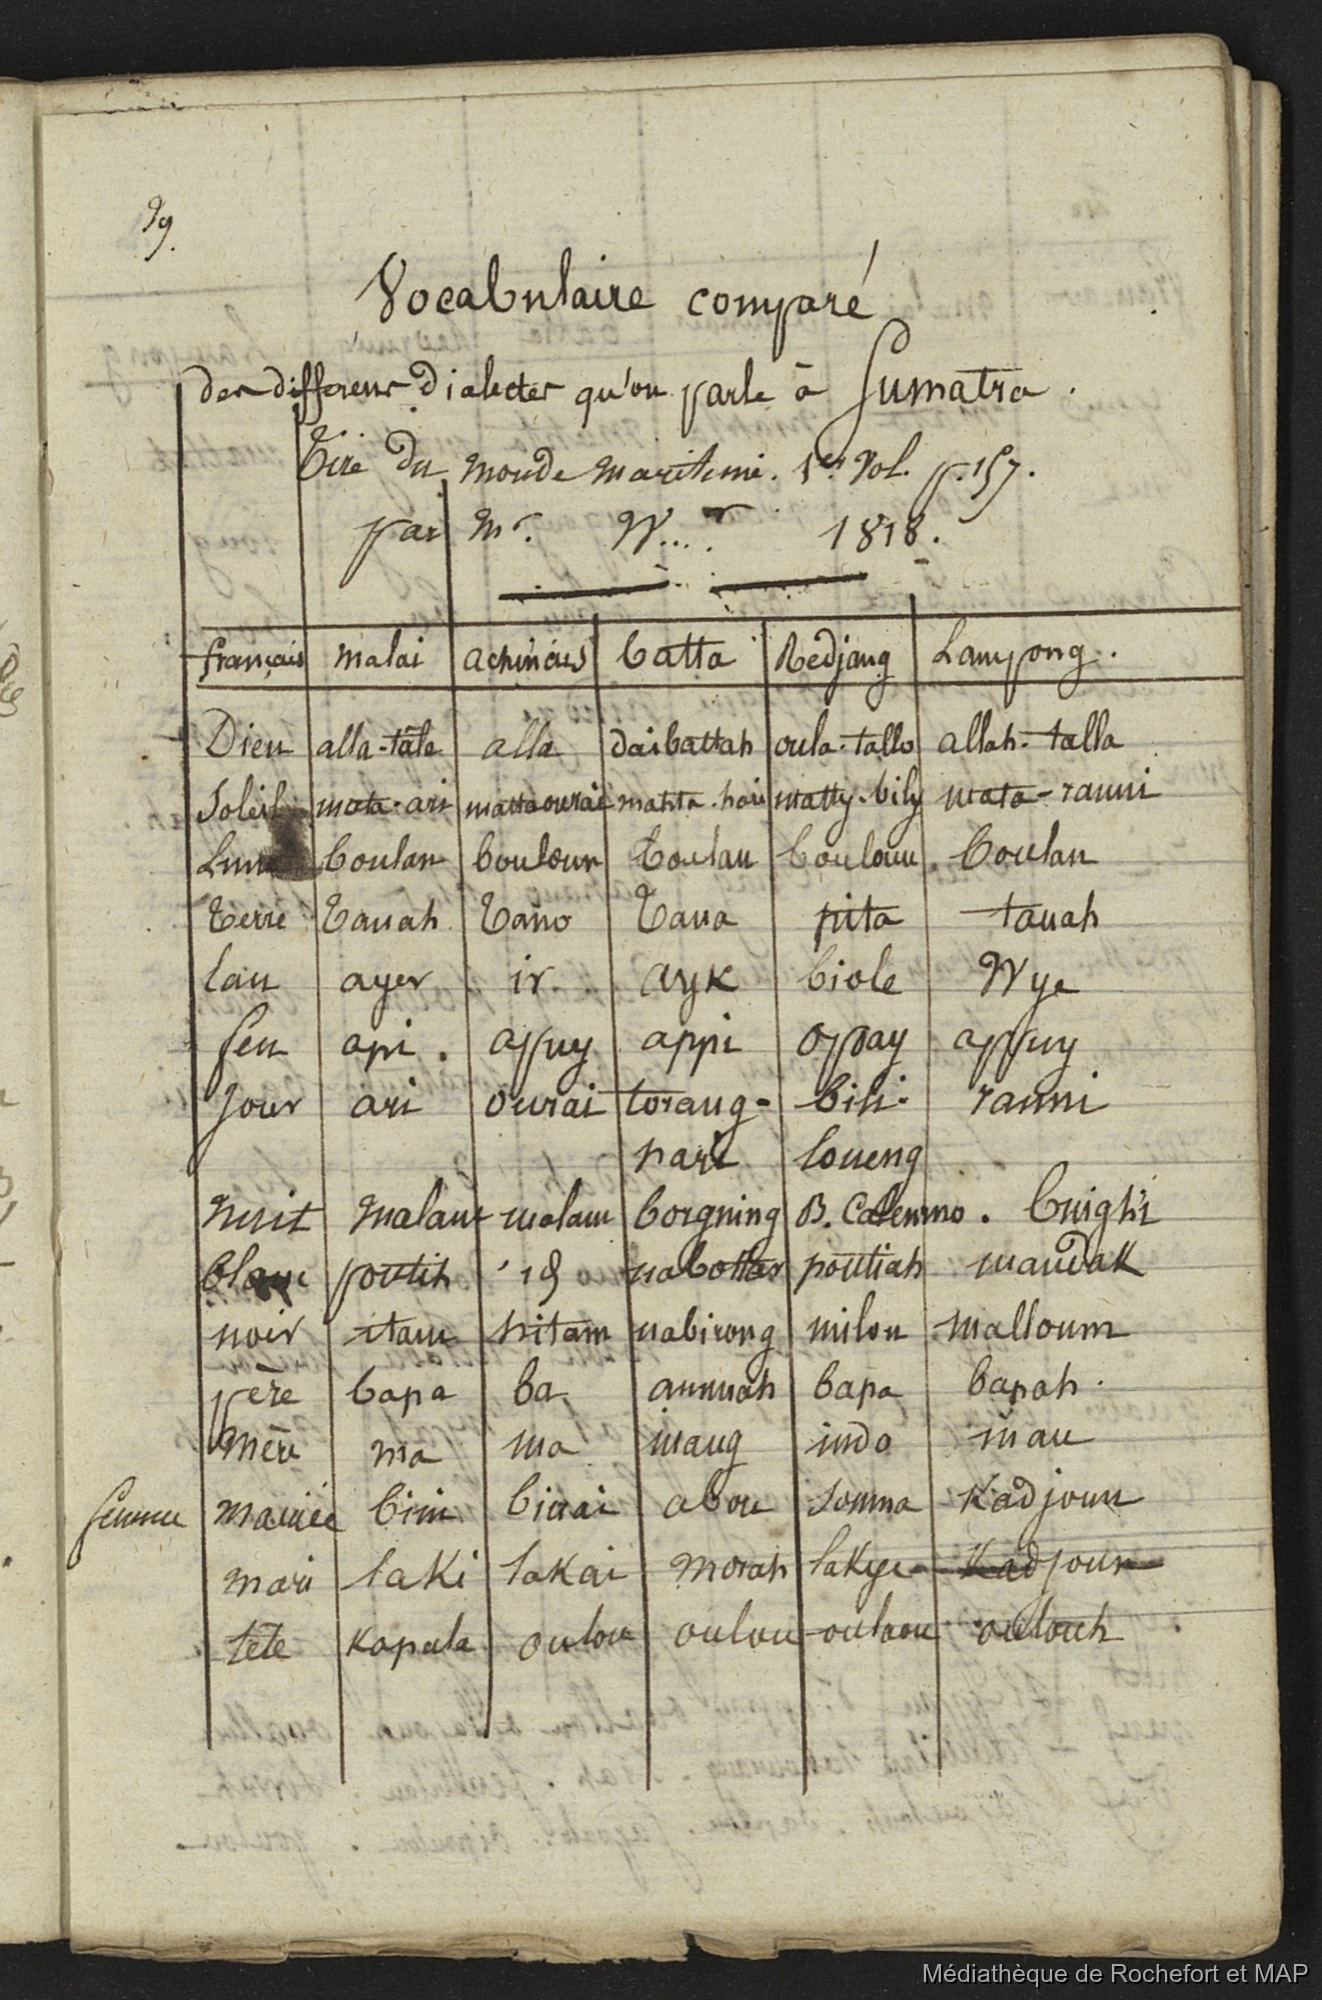 99.
Vocabulaire comparé
des differens dialectes qu'on parle à Sumatra.
Tiré du monde maritime. 1er Vol. p. 157.
par Mr. W.... 1818.
français malai achinais batta Redjang Lampong.
Dieu alla-tale alla daibattah oula-tallo allah-talla
Soleil mata-ari mattaourai mahta-hari matty-bily mata-ranni
Lune boulan bouloun boulan boulouu boulan
Terre Tanah Tano Tana pita tanah
lau ayer ir ayk biole Wye
feu api. appuy appi oppay appuy
jour ari ourai torang- bili- ranni
hari loueng
nuit malam malam borgning B. Calemmo. binghi
blanc poutih id nabottar poutiah maudak
noir itam hitam nabirong milou malloum
père bapa ba ammah bapa bapah.
mère ma ma inang indo inau
femme mariée bini binai abou somma Kadjoun
mari laki lakai morah lakye Kadjoun
tête kapala oulou oulou oulaou oulouh
Médiathèque de Rochefort et MAP